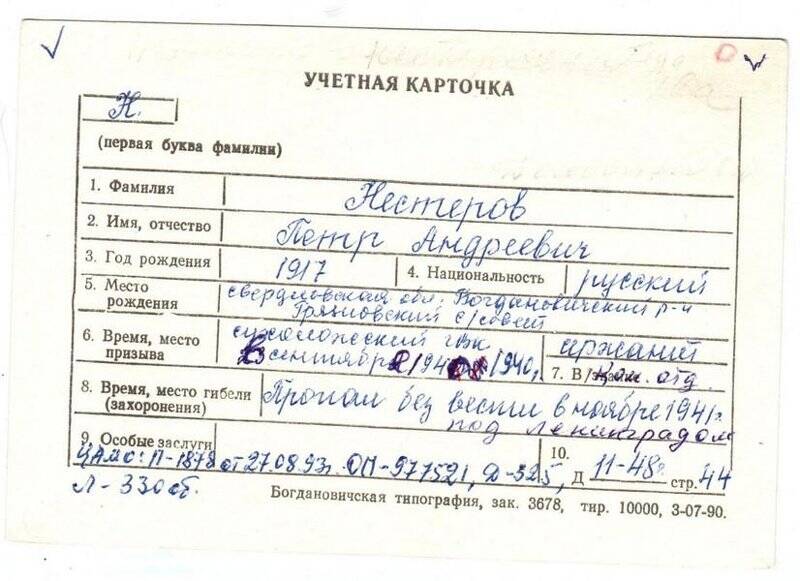 УЧЕТНАЯ КАРТОЧКА
Н.
(первая буква фамилии)
1. Фамилия Нестеров
2. Имя, отчество Петр Андреевич
3. Год рождения 1917 4. Национальность русский
5. Место рождения свердловская обл. Богдановичский р-н
Грязновский с/совет
6. Время, место призыва сухоложский ГВК
В сентябре /1940г,
7. В/ ком. отд.
8. Время, место гибели (захоронения) Пропал без вести в ноябре 1941г.
под Ленинградом
9. Особые заслуги 10.
ЦАМО: П-1878 от 27.08.93г. ОП-977521, Д-525, Д 11-48г. стр. 44
Л-330об.
Богдановичская типография, зак. 3678, тир. 10000, 3-07-90.